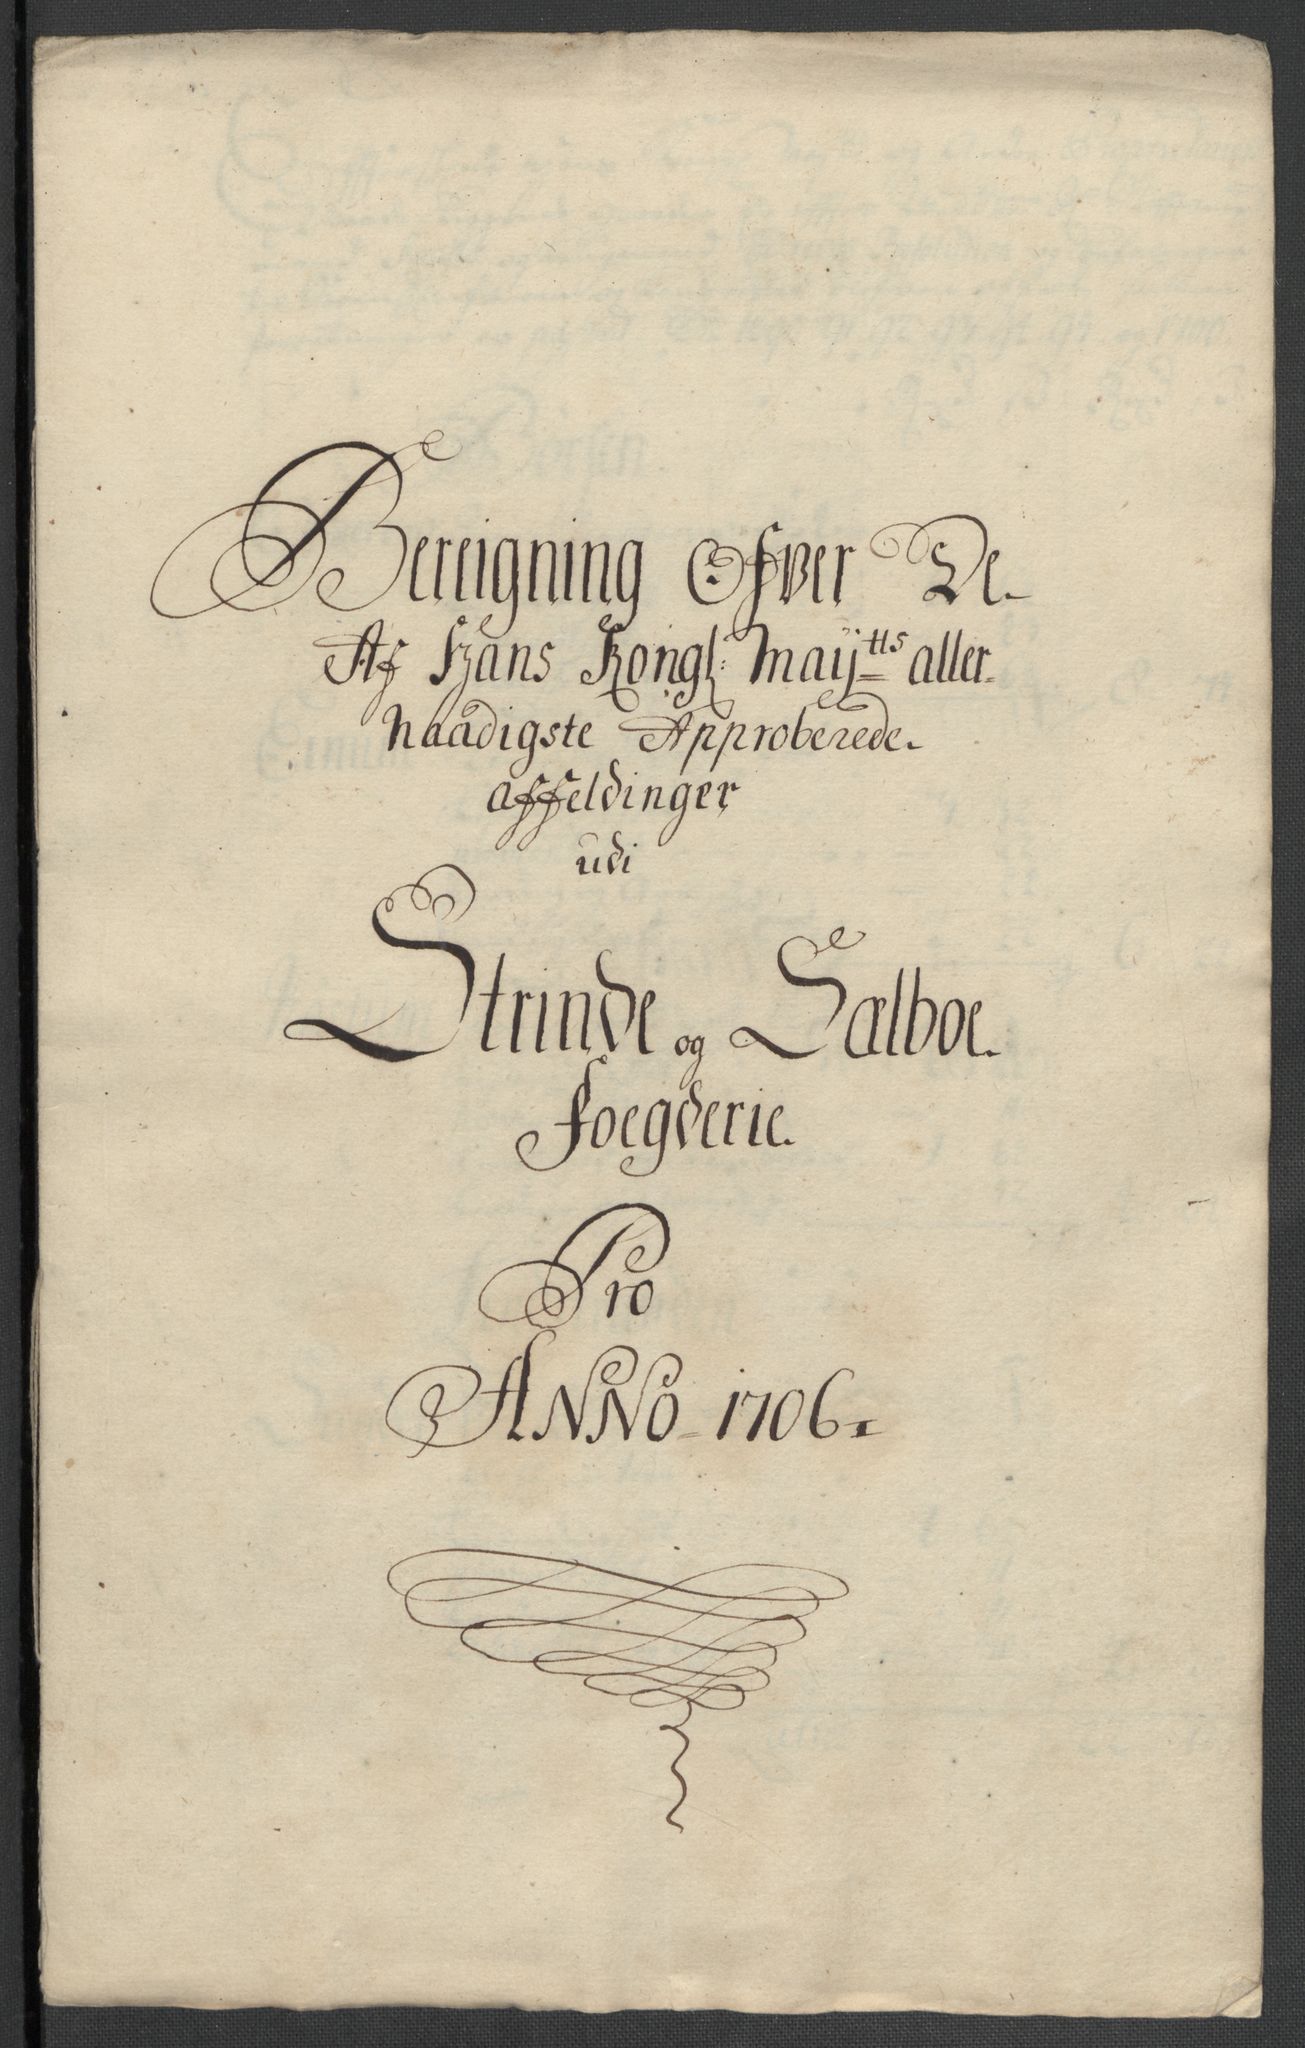 Bereigning Ofver De
Af Hans Kongl: Maÿtts aller
Naadigste Approberede
affeldinger
udi
Strinde og Sælboe
foegderie.
Pro
ANNO 1706.